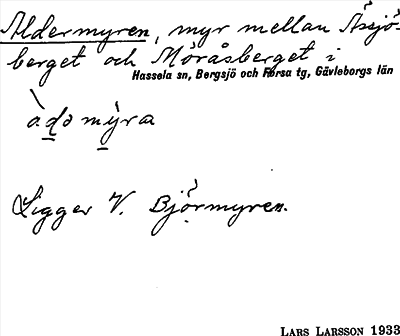 Aldermyren, myr mellan Åssjö-
berget och Möråsberget i
Hassela sn, Bergsjö och Forsa tg, Gävleborgs län
àdo mỳra
Ligger V. Björmyren.
LARS LARSSON 1933